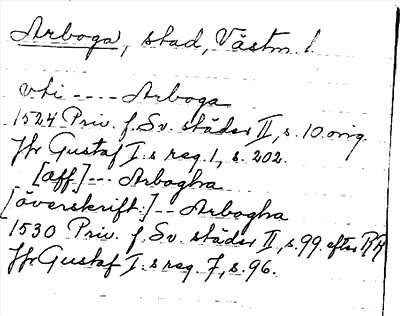 Arboga, stad, Västm. l.
vti ---- Arboga
1524 Priv. f. Sv. städer II, s. 10 orig.
Jfr Gustaf I.s reg. 1, s. 202.
[aff.] --- Arbogha
[överskrift.] -- Arbogha
1530 Priv. f. Sv. städer II, s. 99. efter RR
Jfr Gustaf I.s reg. 7, s. 96.